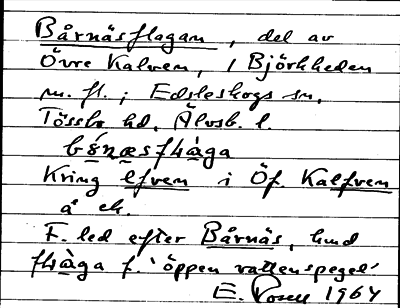 Bårnäsflagan, del av
Övre Kalven, / Björkheden
m. fl. i Edsleskogs sn,
Tössbo hd, Älvsb. l.
Kring elfven i Öf. Kalfven
å ek.
F. led efter Bårnäs, hund
flåga f. 'öppen vattenspegel'
E. 1964